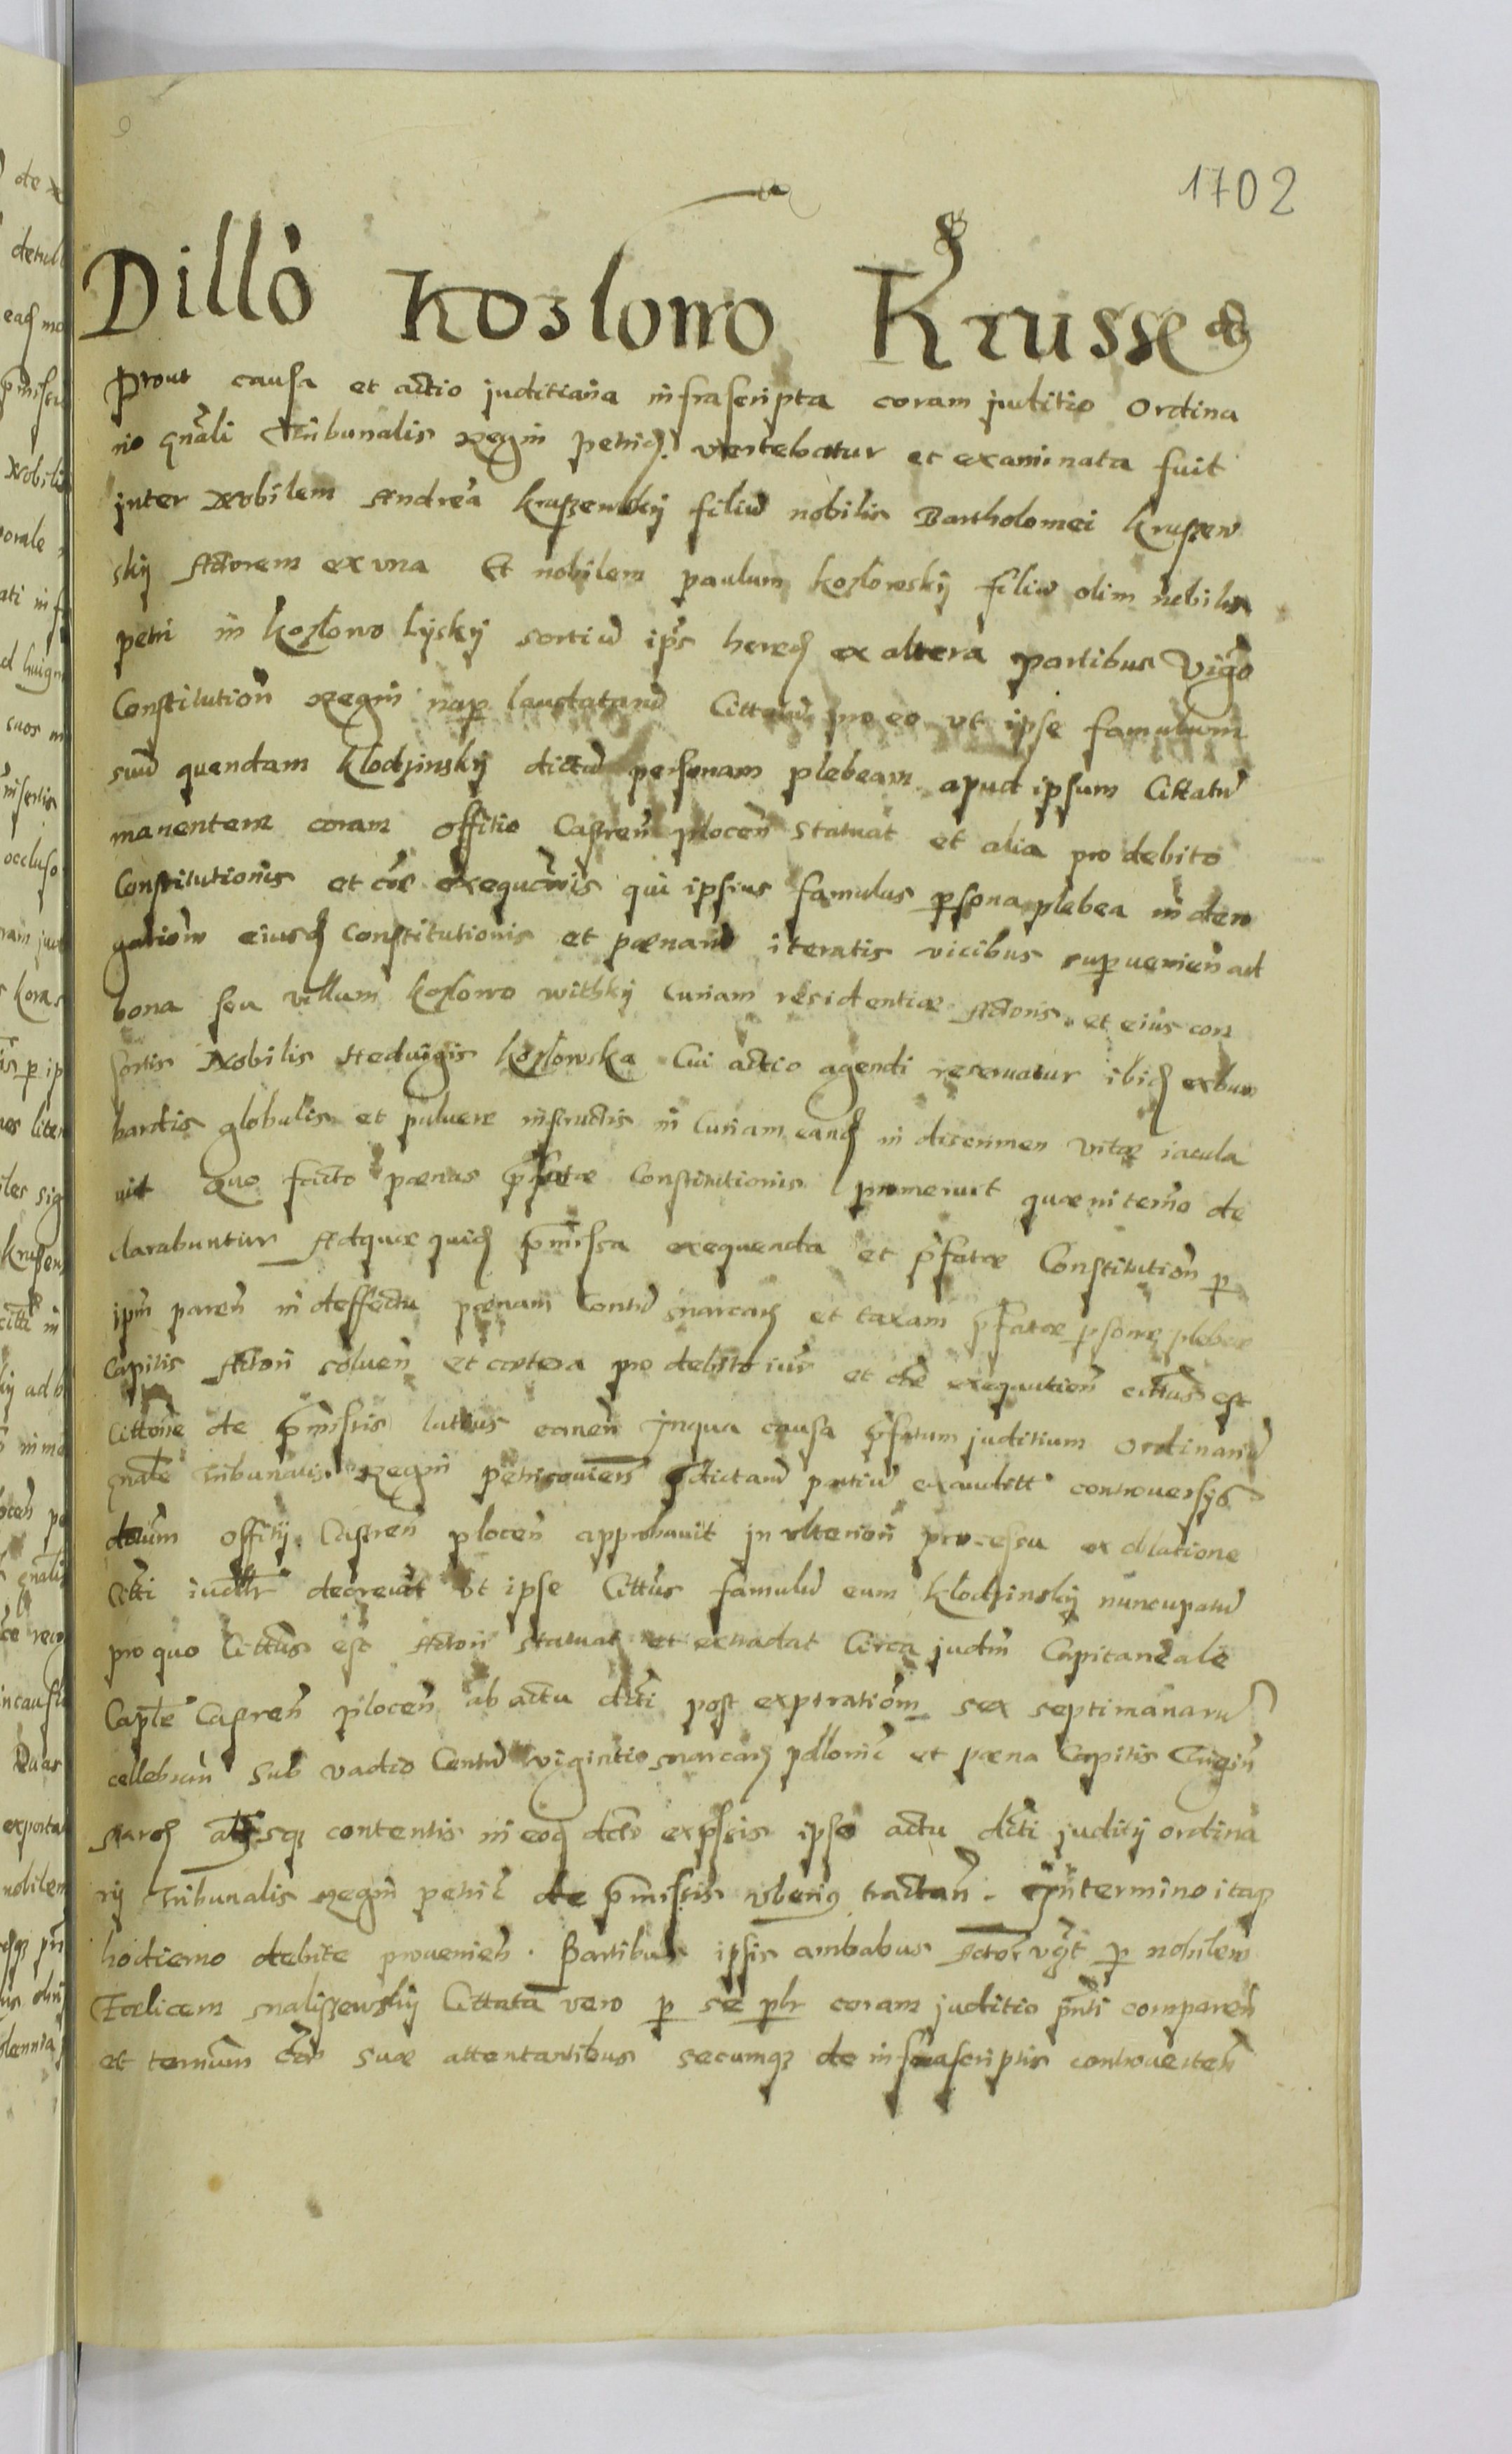 1702
Dillò Koslowo Krusse
Prout causa et actio juditiaria infrascripta coram juditio Ordina
rio gnãli Tribunalis Regni petric. vertebatur et examinata fuit
inter Nobilem Andreã kruszewskij filiũ nobilis Bartholomei kruszew
skij Actorem ex vna Et nobilem paulum kozlowskij filiũ olim nobilis
petri in kozlowo Lijskij sortiũ ips hered ex altera partibus Vigo
Constitution Regni nup laudatarũ Cittatũ pro eo vt ipse famulum
suũ quendam Klodzinskij dictũ personam plebeam apud ipsum Cittatũ
manentem coram offitio Castren plocen statuat et alia pro debito
Constitutionis et exequeris qui ipsius famulus psona plebea in dero
gation eiusd Constitutionis et pœnarũ iteratis vicibus superuenien ad
bona seu villam kozlowo withkij Curiam residentiæ Actoris et eius con
sortis Nobilis Heduigis kozlowska Cui actio agendi reseruatur ibid exbom
bardis globulis et puluere instructis in Curiam eand in discrimen vitæ iacula
uit Quo facto pœnas pfatæ Constitutionis promeruit quæ in termo de
clarabuntur Adquæ quid pmissa exequenda et pfatæ Constitution p
ipm paren in deffectu pœnam Centũ marcar et taxam pfatæ psonæ plebeæ
Capitis Actori soluen et cætera pro debito iur et exequution cittatus est
Cittone de pmissis latius canen Inqua causa pfatum juditium Ordinariũ
gnale Tribunalis Regni petricouien pdictarũ partiũ exauditt controuersijs
dcrum Offitij Castren plocen approbauit in vlteriori processu ex dilatione
Citti decreuit vt ipse Cittus famulũ eum Klodzinskij nuncupatũ
pro quo Cittus est Actori statuat et extradat Circa judm Capitaneale
Caple Castren plocen ab actu dcti post expiration sex septimanarũ
cellebran sub vadio Centũ viginti marcar pollonic et pœna Capitis Trigin
marcar alijsq contentis in eod dcro exprssis ipso actu dcti juditij ordina
rij Tribunalis regni petric de pmissis vberius tractan. In termino itaq
hodierno debite prouenien. Partibus ipsis ambabus Actor vgt p nobilem
Fœlicem maliszewskij Cittata vero p se plr coram juditio pnti comparen
et terminum suæ attentantibus secumq de infrascriptis controuerten